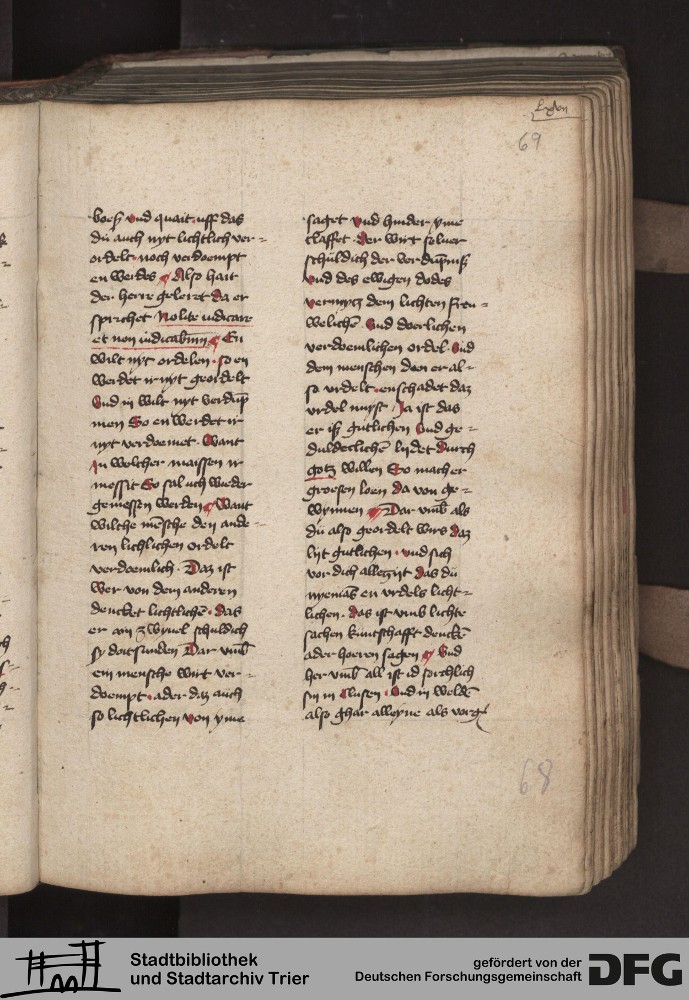 lxviii
69
boeß vnd quait · uff das
du auch nyt lichtlich ver=
ordelt · noch verdoempt
en werdes Also hait
der herre geleret da er
sprichet Nolite iudicare
et non iudicabimini En
wilt nyt ordelen · so en
werdet ir nyt geordelt
Vnd in wilt nyt verdup
men So en werdet ir
nyt verdoemet · Want
In wolcher maissen ir
messit So sal uch wieder
gemessen werden Want
wilche mēsche den ande=
ren lichlichen ordelt
verdoemlich · Daz ist
wer von dem anderen
dencket lichtlichē · das
er ain zwyuel schuldich
sy doitsunden Dar vmb
ein mensche wirt ver=
doempt · ader daz auch
so lichtlichen von yme
saget vnd hinder yme
claffet · der wirt seluer
schuldich der verdupniß
vnd des ewigen dodes
vermytz dem lichten freu=
welichē · Vnd doerlichen
verdoemlichen ordel · Vnd
dem menschen den er al=
so vrdelt · enschadet daz
vrdel nuyst · Ja ist das
er iß gutlichen Vnd ge=
duldeclichē lydet durch
gotz willen So mach er
groesen loen da von ge=
wynnen Dar vmb als
du also geordelt wirs daz
lijt gutlichen · vnd sich
vor dich allezijt das du
nyemās en vrdels licht=
lichen · das ist vmb lichte
sachen kuntschafft denckē
ader hoeren sagen Vnd
her vmb all ist id sorchlich
sin in Clusen · Vnd in weldē
also ghar alleyne als vorg
68
Stadtbibliothek
und Stadtarchiv Trier
gefördert von der
Deutschen Forschungsgemeinschaft
DFG